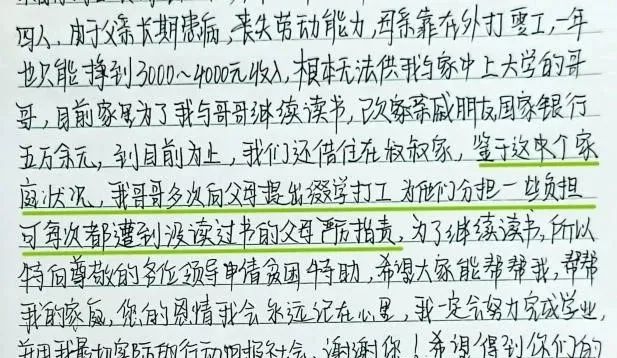 四人，由于父亲长期患病，丧失劳动能力，母亲靠在外打零工，一年
也只能挣到3000~4000元收入，根本无法供我与家中上大学的哥
哥，目前家里为了我与哥哥继续读书，已欠家亲戚朋友国家银行
五万余元，到目前为止，我们还借住在叔叔家，鉴于这中个家
庭状况，我哥哥多次向父母提出缀学打工 为他们分担一些负担
可每次都遭到没读过书的父母严厉指责，为了继续读书，所以
特向尊敬的各位领导申请贫困特助，希望大家能帮帮我，帮帮
我的家庭，您的恩情我会永远记在心里，我一定会努力完成学业，
并用我最切实际的行动回报社会，谢谢你！希望得到你们的